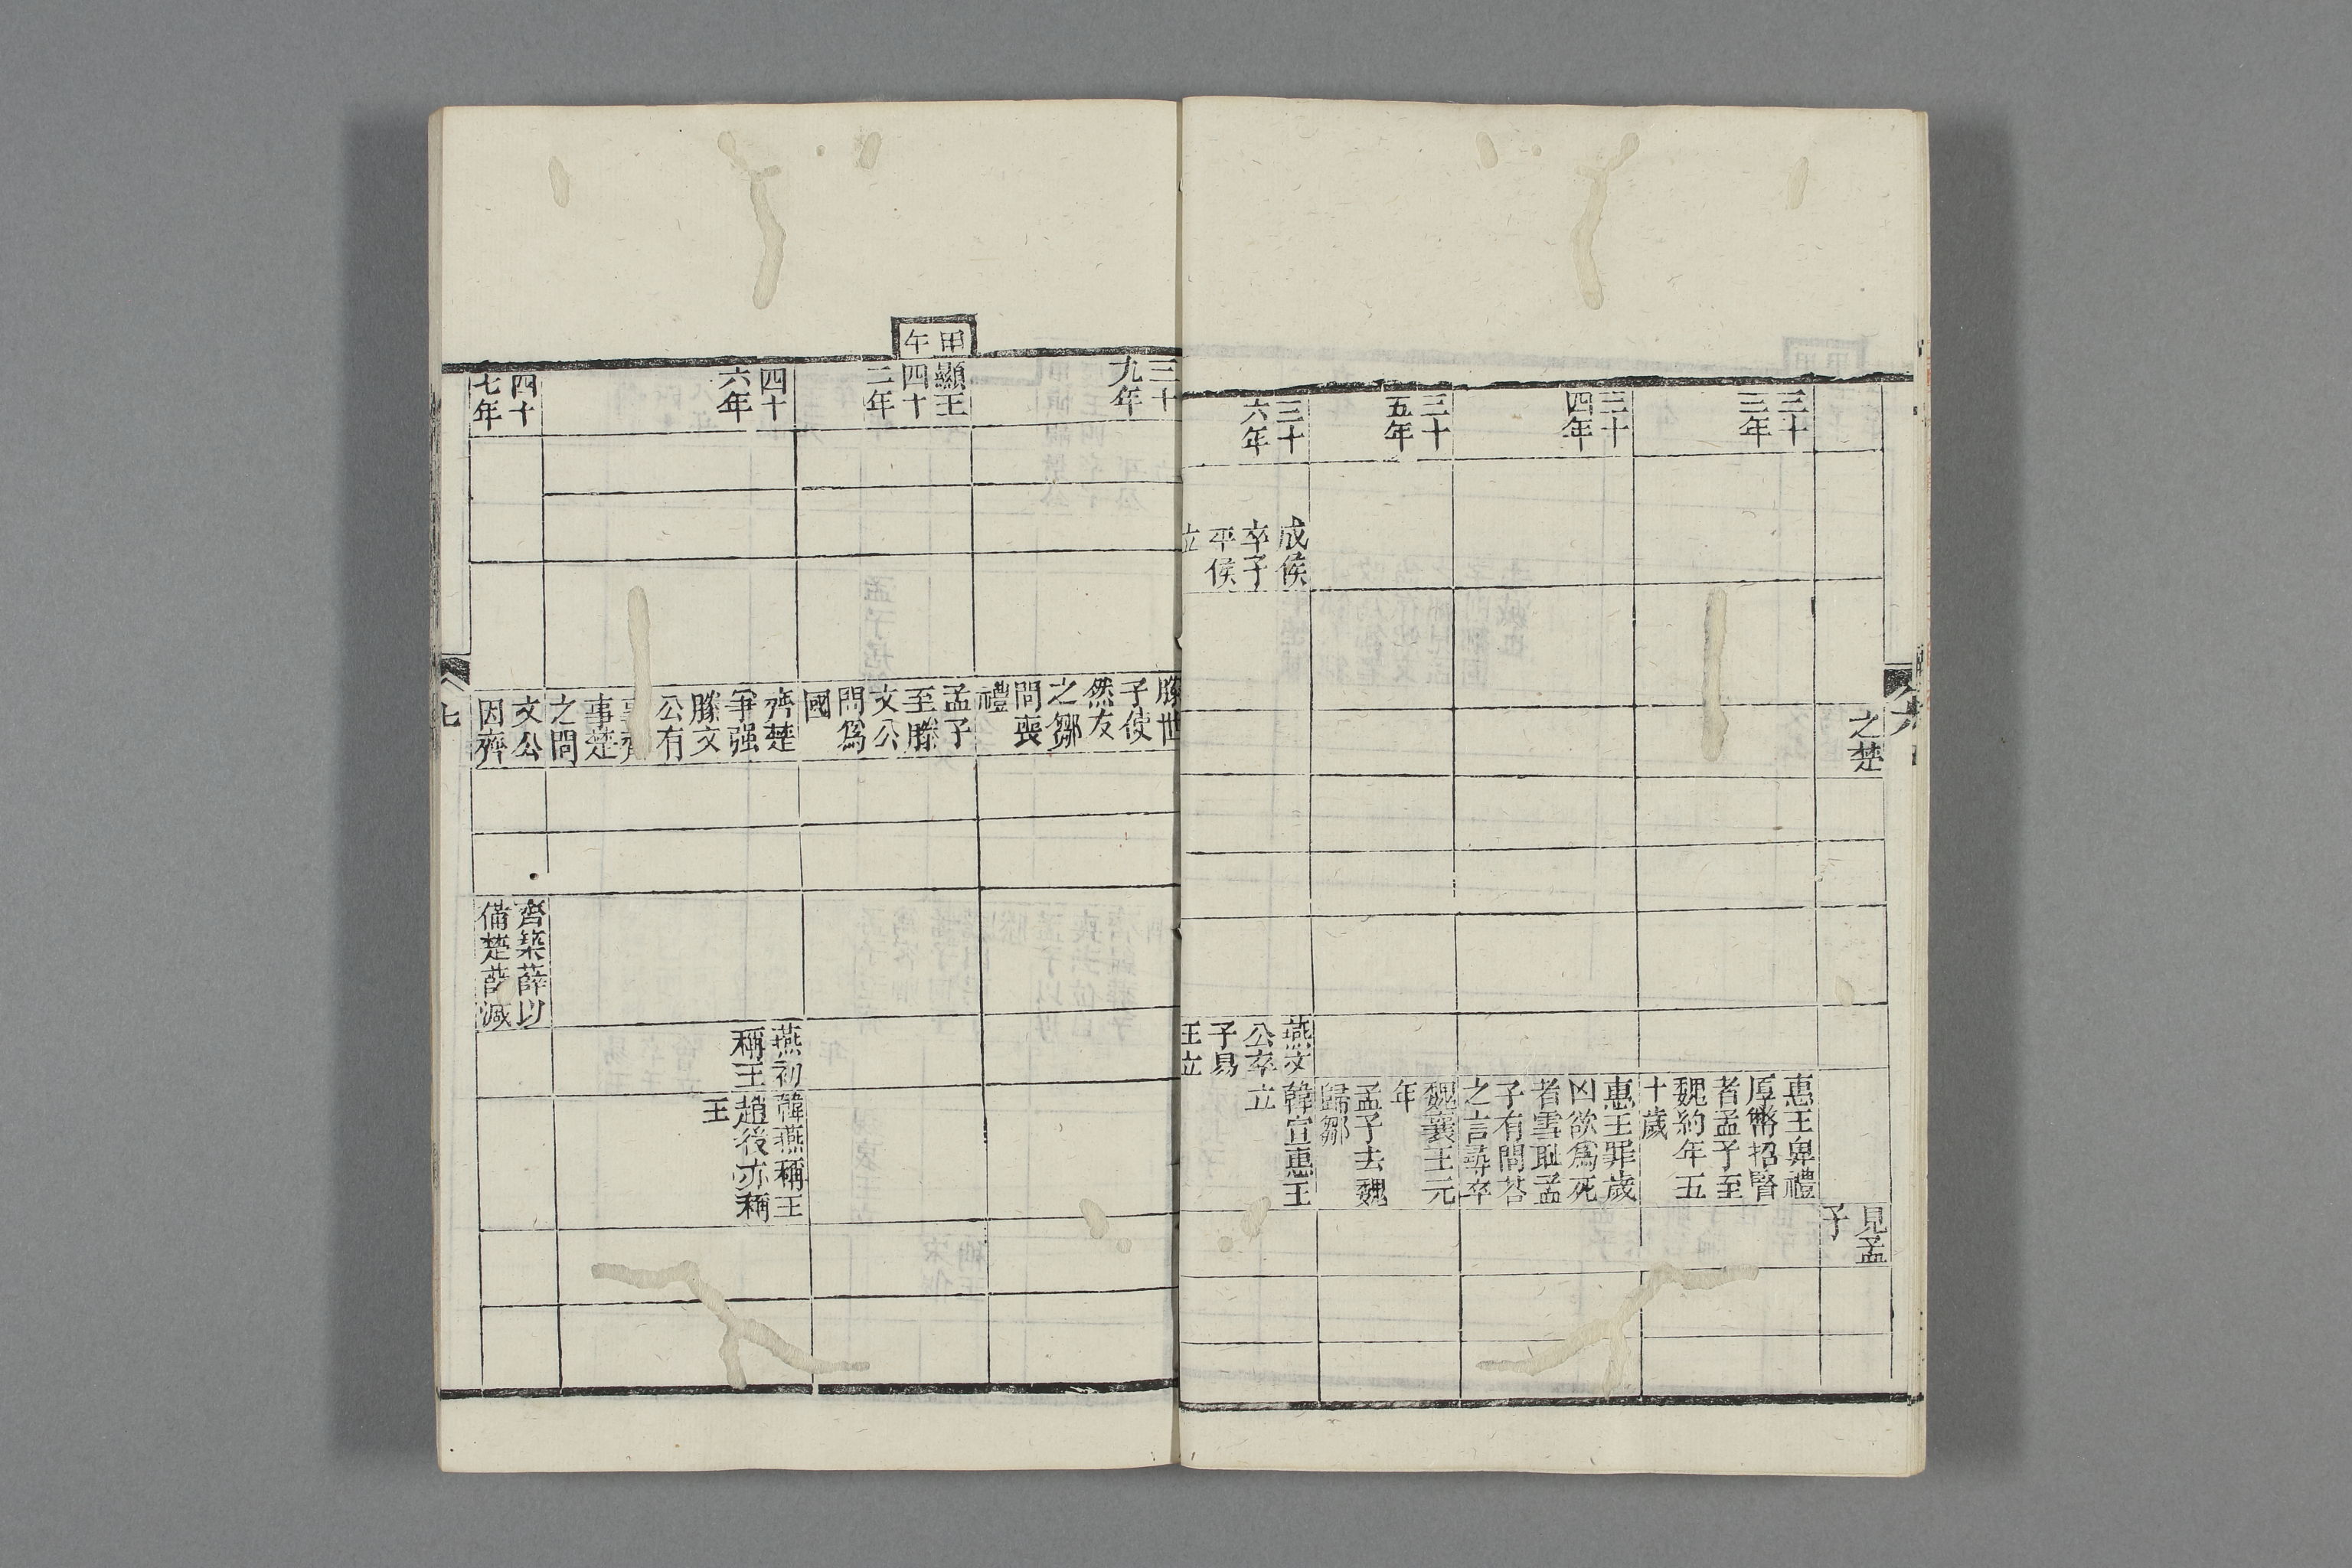 之楚
見孟
子
三十
三年
惠王卑禮
厚幣招賢
者孟子至
魏約年五
十歲
三十
四年
惠王罪歲
凶欲爲死
者雪耻孟
子有問荅
之言尋卒
三十
五年
魏襄王元
年
孟子去魏
歸鄒
三十
六年
成侯
卒子
平侯
立
燕文
公卒
子易
王立
韓宣惠王
立
三十
九年
滕世
子使
然友
之鄒
問喪
禮
甲
午
顯王
四十
二年
孟子
至滕
文公
問爲
國
四十
六年
齊楚
爭强
滕文
公有
事齊
事楚
之問
燕初
稱王
韓燕稱王
趙後亦稱
王
四十
七年
文公
因齊
齊築薛以
備楚薛滅
七